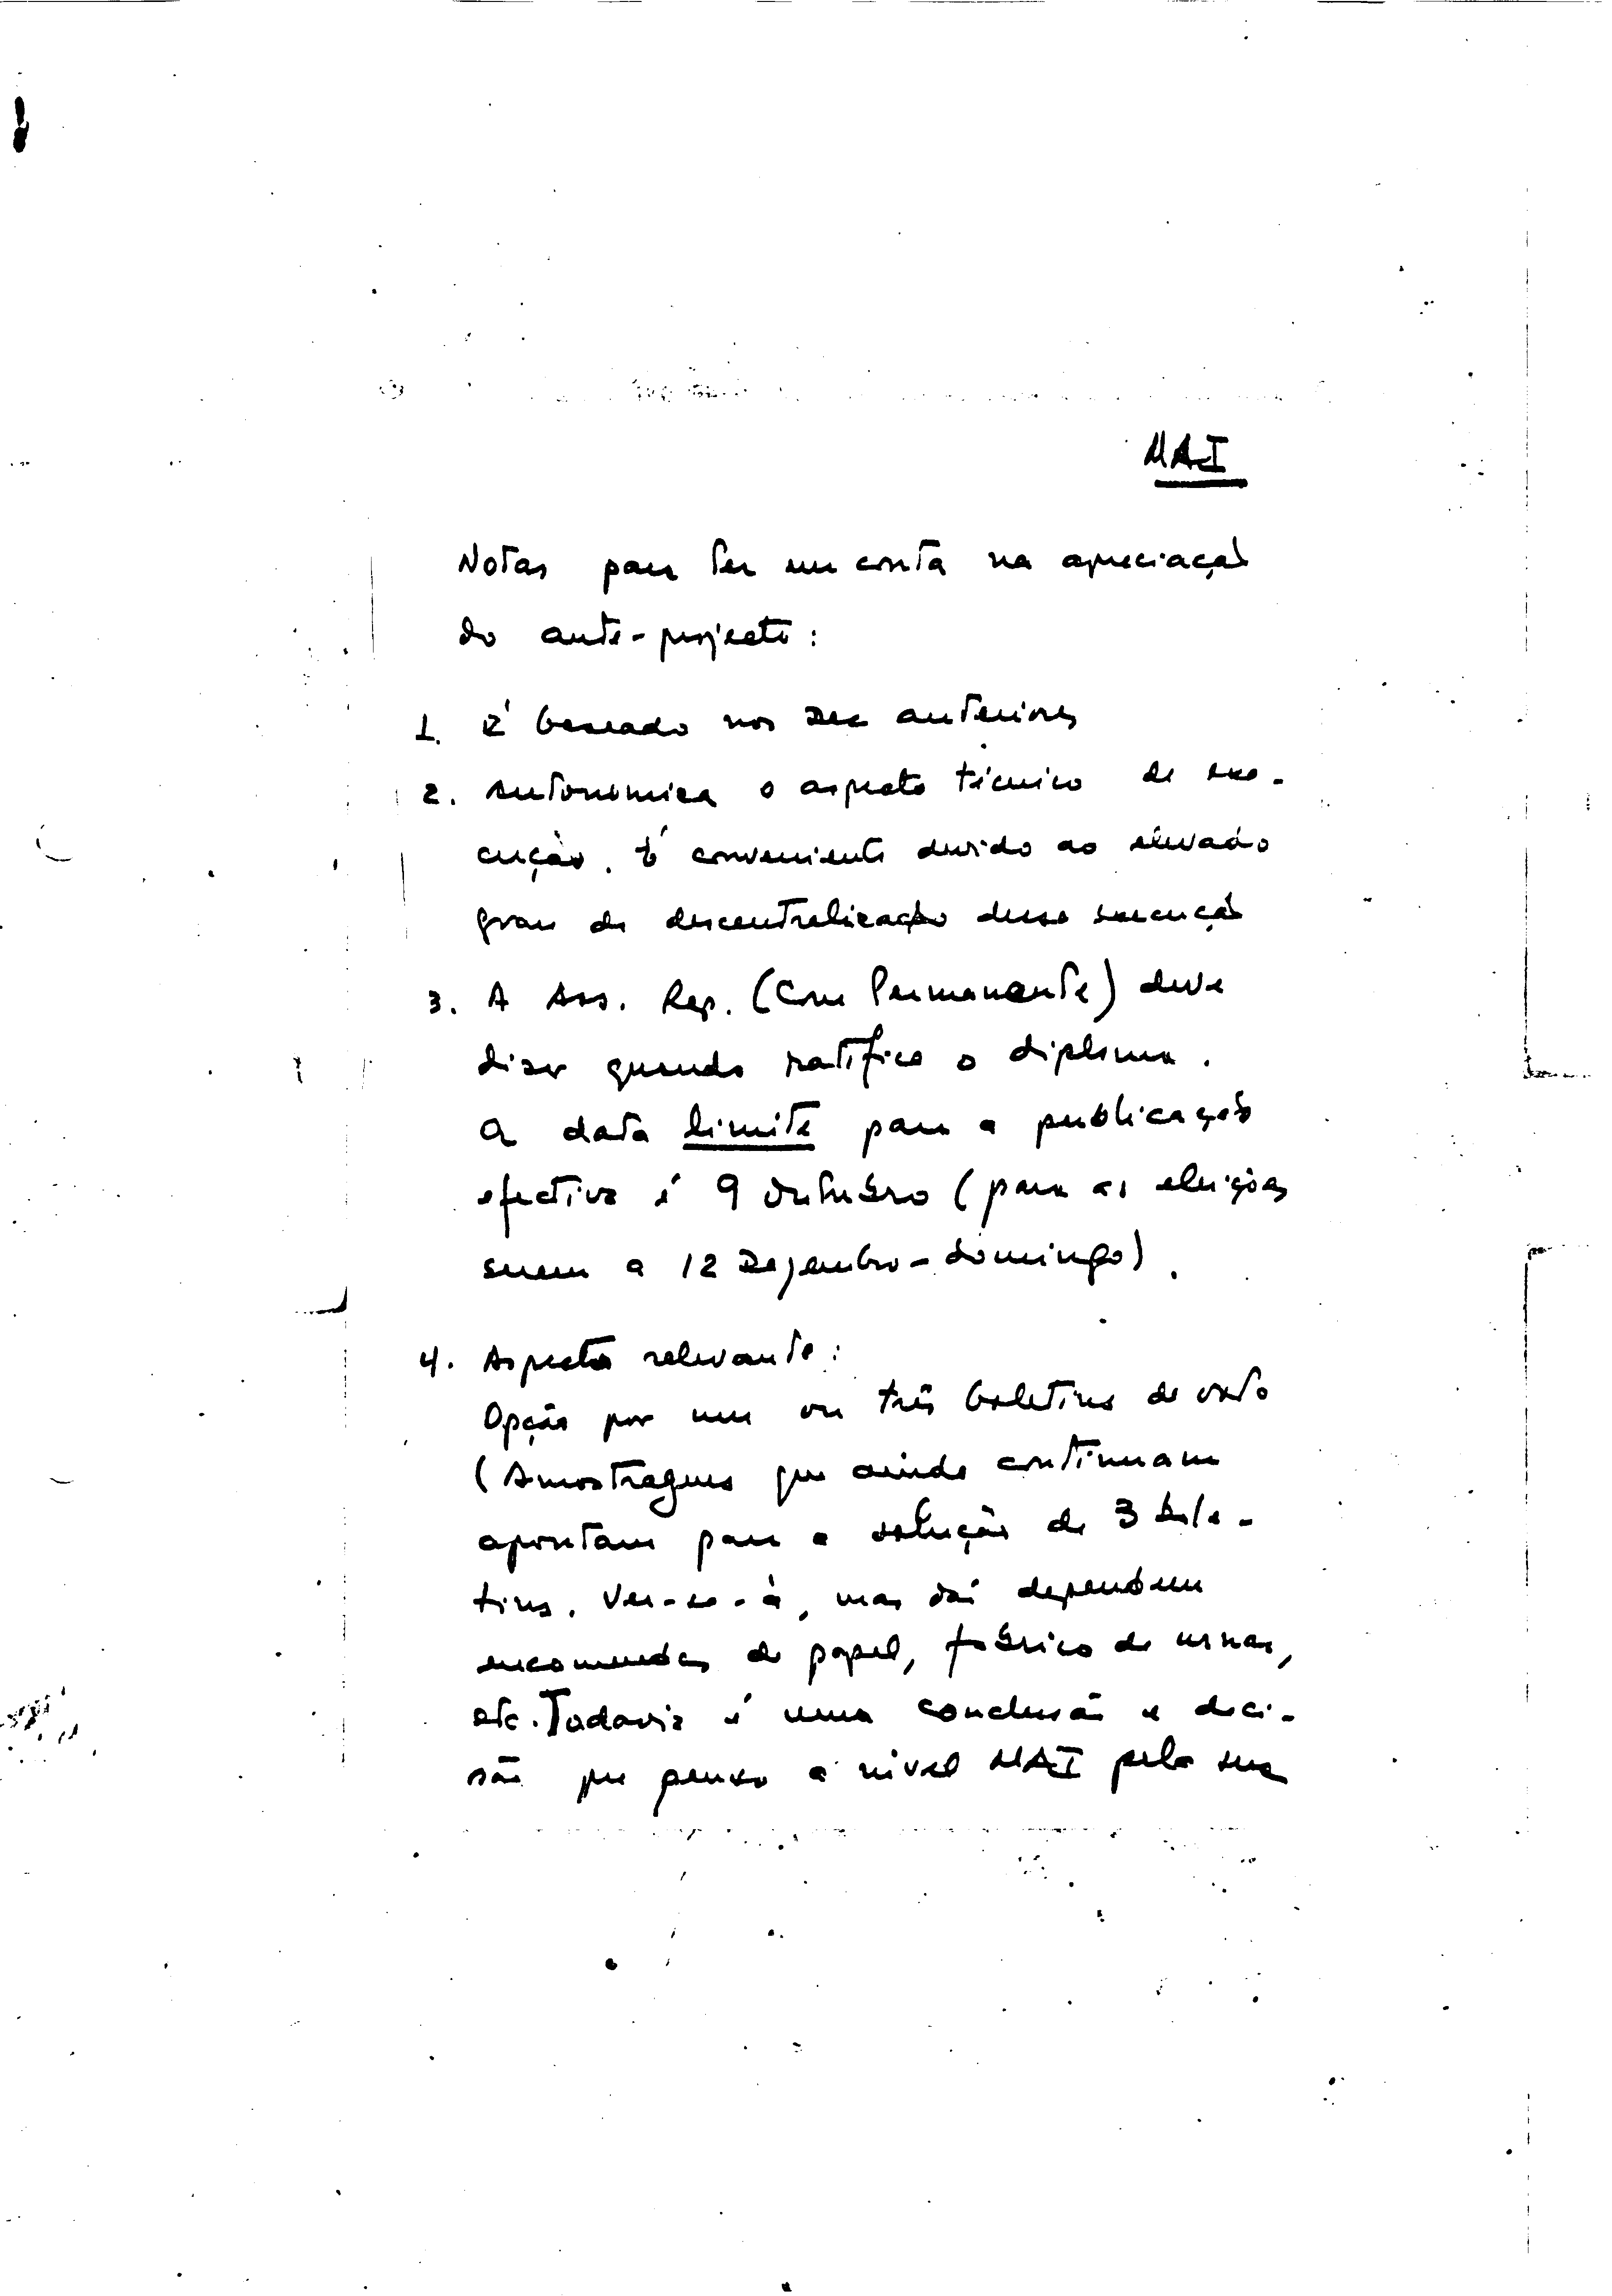 MAI
Notas para ter em conta na apreciação
do ante-projecto:
1. É baseado nos Dec anteriores
2. Autonomiza o aspecto técnico de exe-
cução. É conveniente devido ao elevado
grau de descentralização dessa execução
3. A Ass. Rep. (Com Permanente) deve
dizer quando ratifica o diploma.
A data limite para a publicação
efectiva é 9 Outubro (para as eleições
serem a 12 Dezembro - domingo).
4. Aspecto relevante:
Opção por um ou três boletins de voto
(Amostragens que ainda continuam
apontam para a solução de 3 bole-
tins. Ver-se-á, mas daí dependem
encomendas de papel, fabrico de urnas,
etc. Todavia é uma conclusão e deci-
são que penso a nível MAI pela sua